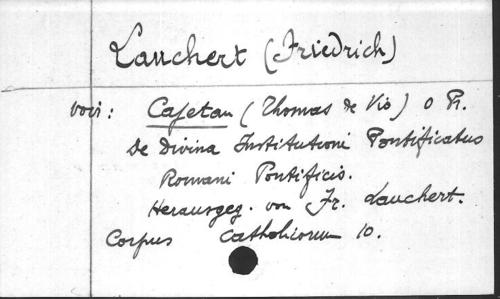 Lauchert (Friedrich)
voir : Cajetan (Thomas de Vio) O Pr.
De Divina Institutioni Pontificatus
Romani Pontificis.
Herausgeg. von Fr. Lauchert.
Corpus Catholicorum 10.